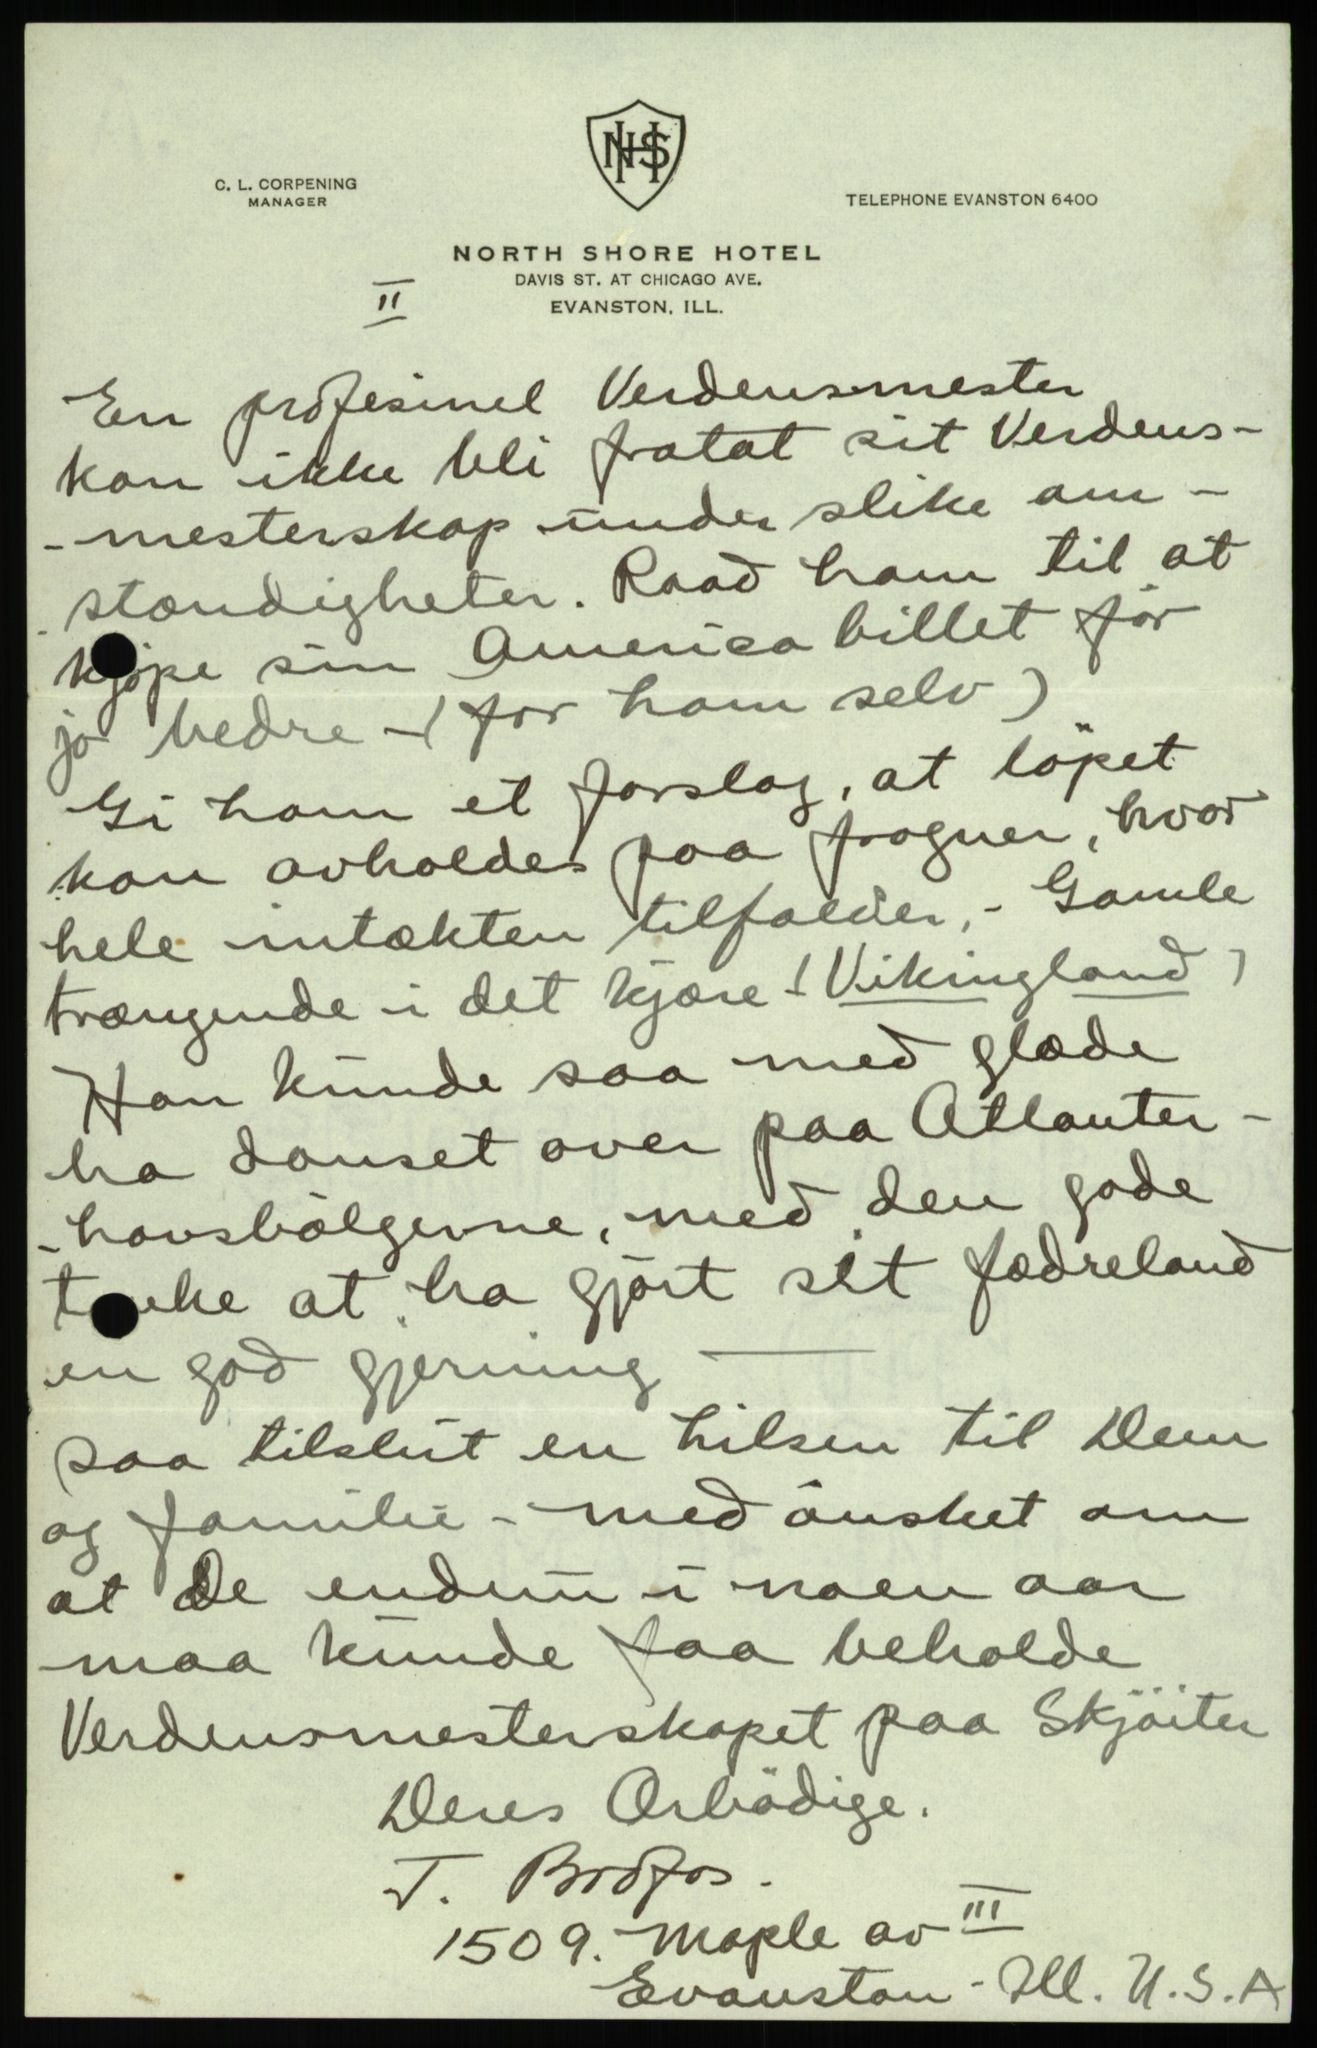 NHS
C. L. CORPENING
MANAGER
TELEPHONE EVANSTON 6400
NORTH SHORE HOTEL
DAVIS ST. AT CHICAGO AVE.
EVANSTON, ILL.
II
En profesinel Verdensmester
kan ikke bli fratat sit Verdens-
-mesterskap under slike om-
stændigheter. Raad ham til at
kjøpe sin America billet før
jo bedre - (for ham selv)
Gi ham et forslag, at löpet
kan avholdes paa frogner, hvor
hele intækten tilfalder, - Gamle
trængende i det kjære (Vikingland)
Han kunde saa med glæde
ha danset over paa Atlanter-
-havsbölgerne, med den gode
tanke at ha gjört sit fædreland
en god gjerning —
saa tilslut en hilsen til Dem
og familie - med önsket om
at De endnu i noen aar
maa kunde faa beholde
Verdensmesterskapet paa Skjöiter
Deres Ærbödige.
T. Brofos.
1509. Maple av III
Evanston - Ill. U.S.A